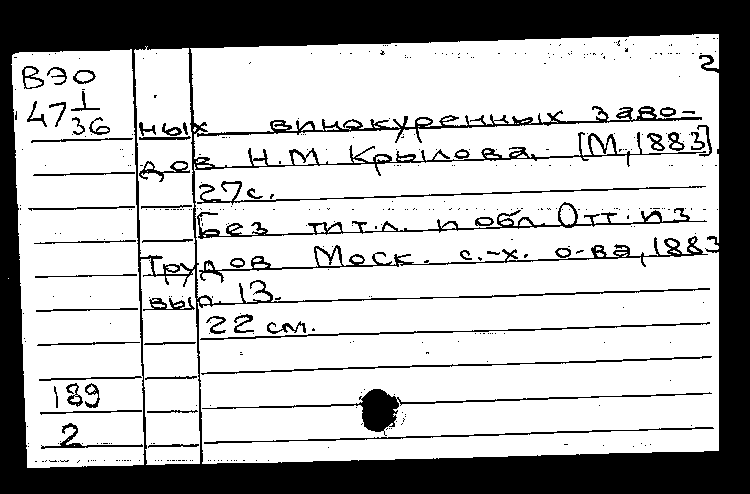 2
ВЭО
47 1/36
ных винокуренных заво-
дов Н.М. Крылова. [М., 1883].
27 с.
Без тит.л. и обл. Отт. из
Трудов Моск. с.-х. о-ва, 1883
вып. 13.
22 см.
189
2